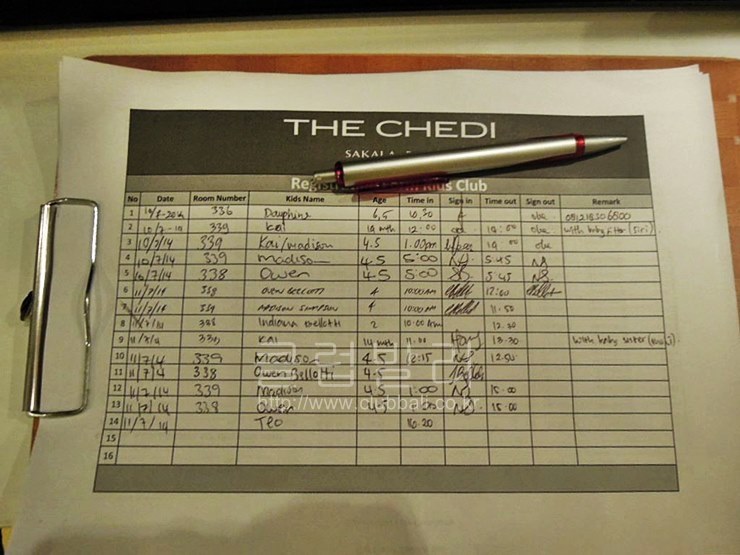 THE CHEDI
SAKALA
Kids Club
No Date Room Number Kids Name Age Time in Sign in Time out Sign out Remark
1 336 Dauphine 6,5 16,30
2 339 Kai 19 mth 12:00 19:00 With baby sitter (Siri)
3 10/7/14 339 Kai/madison 4.5 1.00pm
4 10/7/14 339 Madison 4.5 5:00 5.45
5 10/7/14 338 Owen 4-5 5:00 5.45
6 11/7/14 338 OWEN BELLOTTI 4 10:00AM 12:00
7 11/7/14 339 MADISON SIMPSON 4 10:00AM 11.50
8 338 Indiana Bellotti 2 10:00 Am 12.30
9 339 KAI 19 mth 11:00 13.30 With baby sitter
10 11/7/14 339 Madison 4.5 12:15 12.50
11 11/7/14 338 Owen Bellotti 4.5
12 11/7/14 339 Madison 4.5 1:00 15.00
13 11/7/14 338 Owen 4.5 15.00
14 11/7/14 Teo 16.20
15
16
클럽발리
http://www.clubbali.co.kr